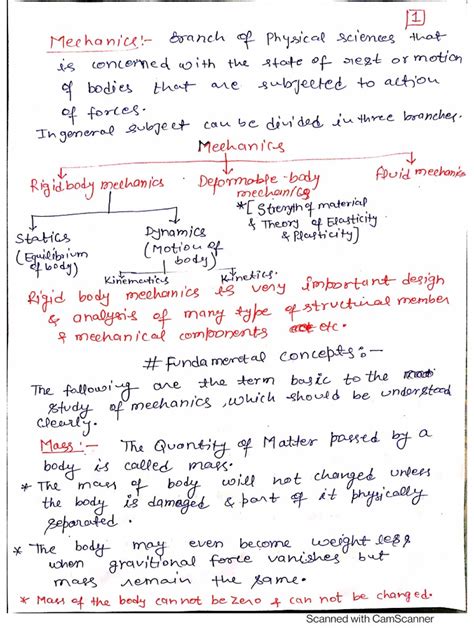 1
Mechanics:- Branch of Physical sciences that
is concerned with the state of rest or motion
of bodies that are subjected to action
of forces.
In general subject can be divided in three branches.
Mechanics
Rigid body mechanics Deformable-body mechanics Fluid mechanics
*[Strength of material
& Theory of Elasticity
& Plasticity]
Statics
(Equilibrium
of body)
Dynamics
(Motion of
body)
Kinematics Kinetics.
Rigid body mechanics is very important design
& analysis of many type of structural member
& mechanical components etc.
# Fundamental concepts:-
The following are the term basic to the
study of mechanics, which should be understood
clearly.
Mass:- The Quantity of Matter passed by a
body is called mass.
* The mass of body will not changed unless
the body is damaged & part of it physically
separated.
* The body may even become weight less
when gravitional force vanishes but
mass remain the same.
* Mass of the body can not be zero & can not be changed.
Scanned with CamScanner